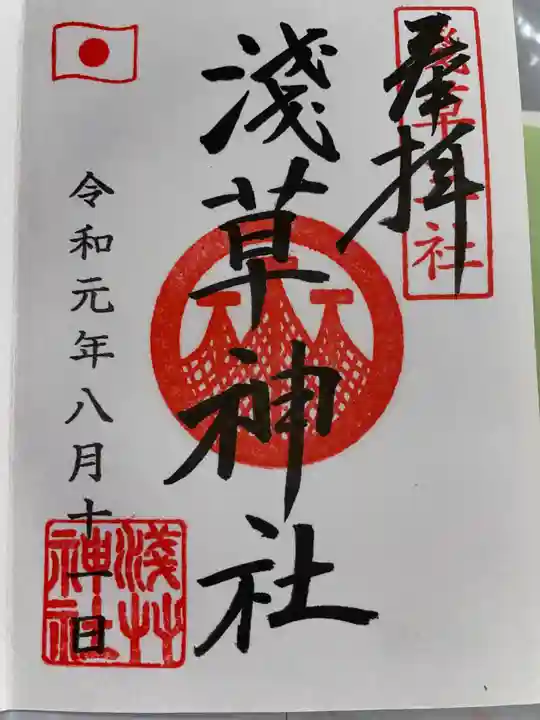 奉拝
淺草神社
令和元年八月十一日
淺草
神社